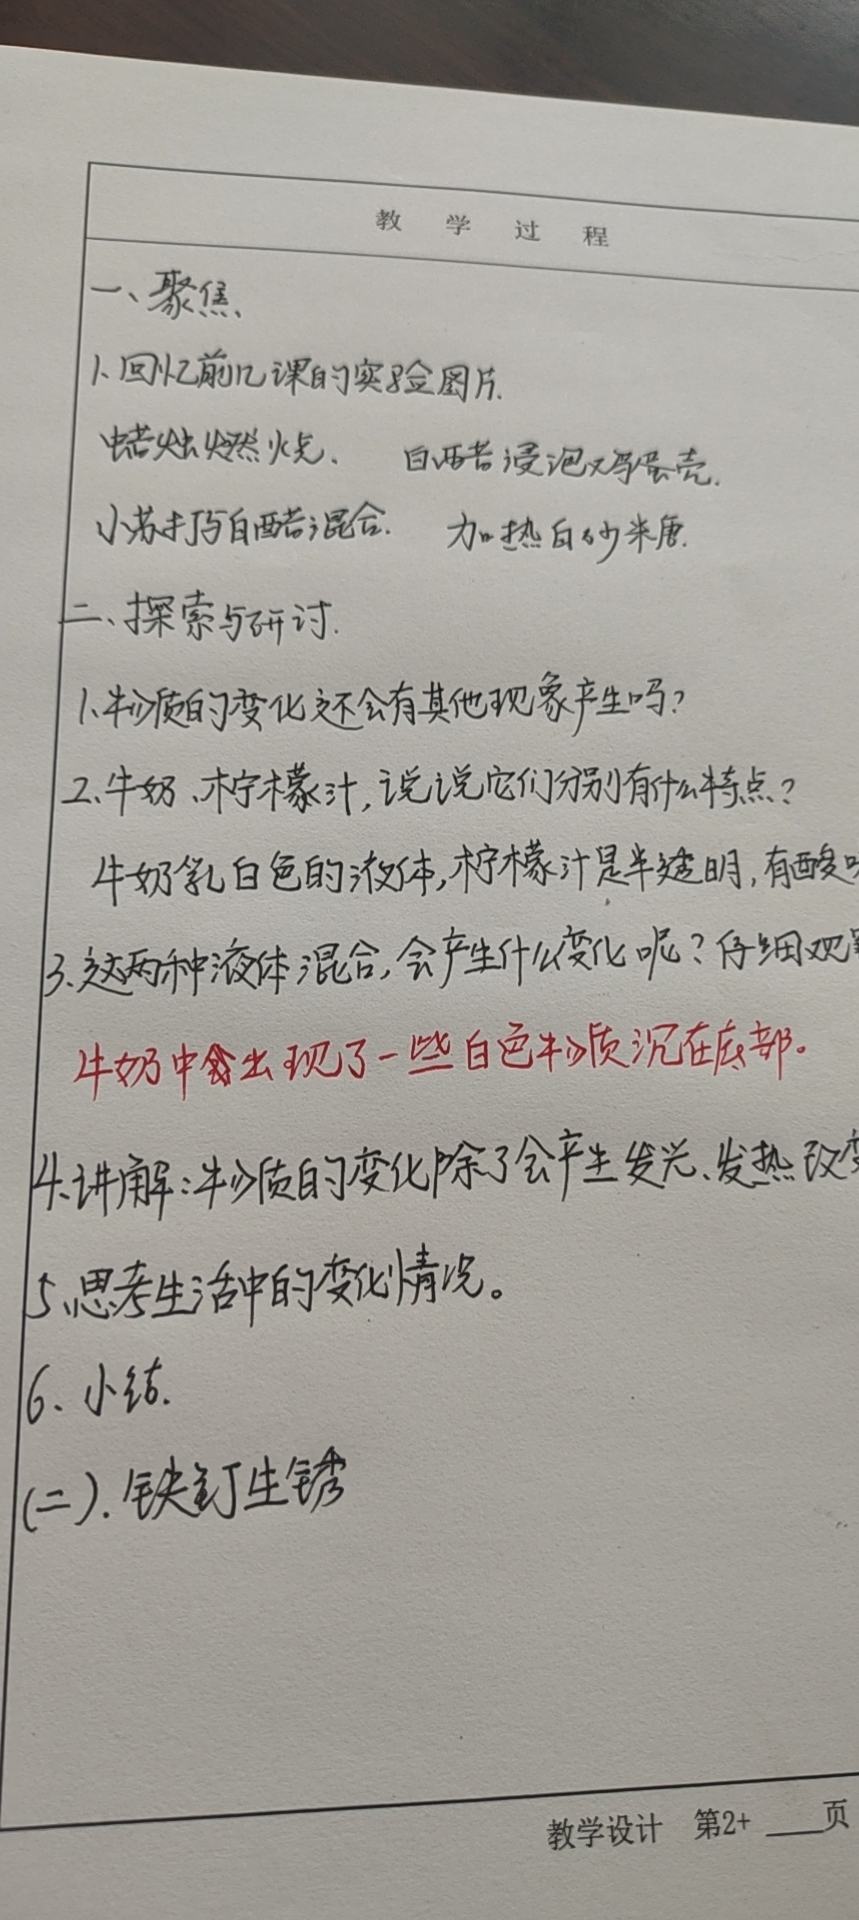 教学过程
一、聚焦
1、回忆前几课的实验图片.
蜡烛燃烧、 白醋浸泡鸡蛋壳.
小苏打与白醋混合. 加热白砂糖.
二、探索与研讨.
1、物质的变化还会有其他现象产生吗?
2、牛奶、柠檬汁,说说它们分别有什么特点?
牛奶乳白色的液体,柠檬汁是半透明,有酸
3、这两种液体混合,会产生什么变化呢?仔细观
牛奶中出现了一些白色物质沉在底部。
4、讲解:物质的变化除了会产生发光、发热改变
5、思考生活中的变化情况。
6、小结.
(二).铁钉生锈
教学设计 第2+ ___页